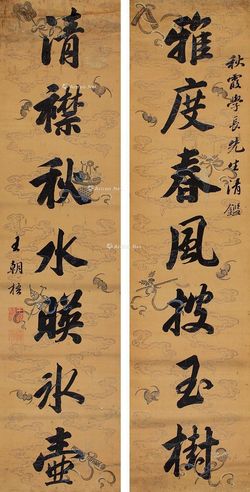 秋霞學長先生清鑑
雅度春風披玉樹
清襟秋水暎冰壺
王朝